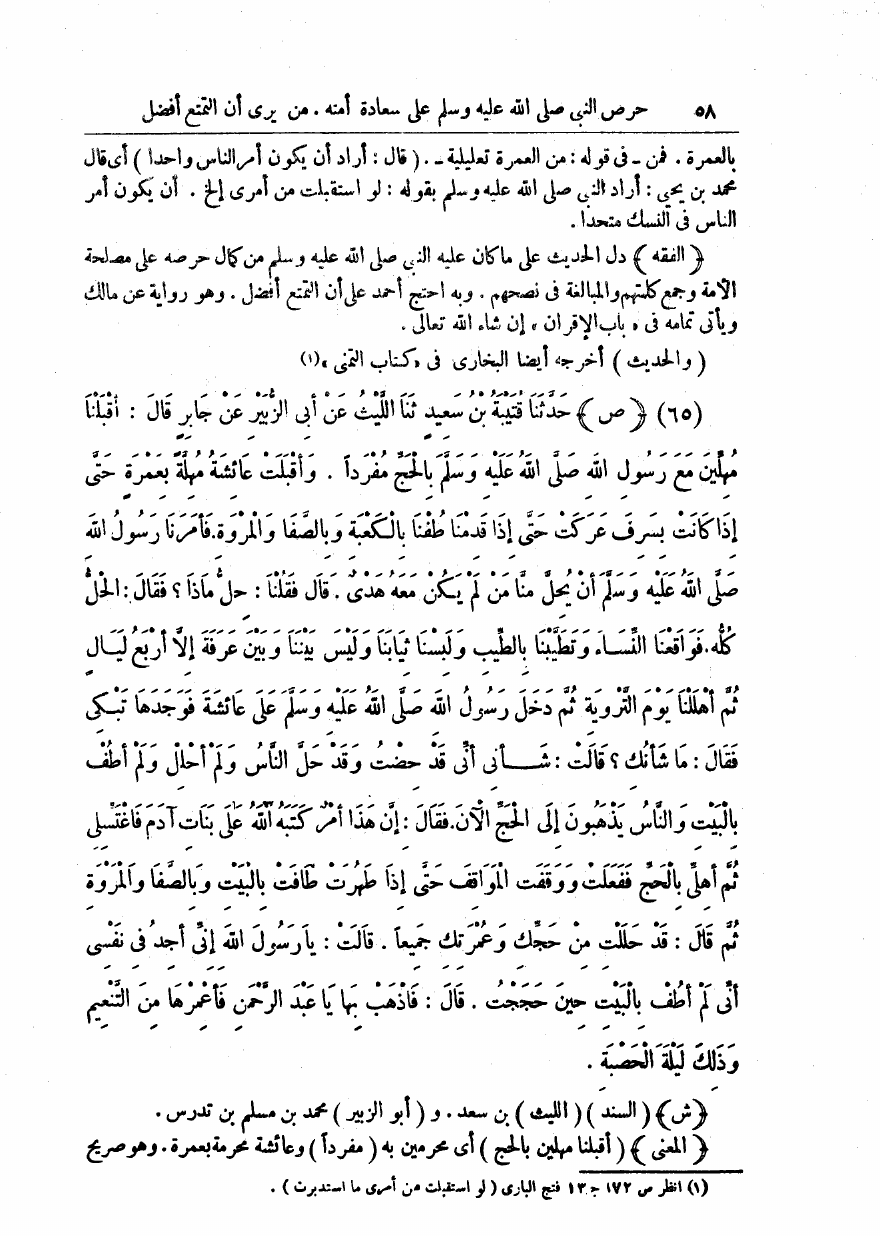 ٥٨ حرص النبى صلى الله عليه وسلم على سعادة أمته . من يرى أن التمتع أفضل
بالعمرة . فمن - فى قوله : من العمرة تعليلية - . ( قال : أراد أن يكون أمر الناس واحدا ) أى قال
محمد بن يحيى : أراد النبى صلى الله عليه وسلم بقوله : لو استقبلت من أمرى إلخ . أن يكون أمر
الناس فى النسك متحدا .
﴿ الفقه ﴾ دل الحديث على ما كان عليه النبى صلى الله عليه وسلم من كمال حرصه على مصلحة
الأمة وجمع كلمتهم والمبالغة فى نصحهم . وبه احتج أحمد على أن التمتع أفضل . وهو رواية عن مالك
ويأتى تمامه فى « باب الإقران » إن شاء الله تعالى .
( والحديث ) أخرجه أيضا البخارى فى « كتاب التمنى » (١)
(٦٥) ﴿ ص ﴾ حَدَّثَنَا قُتَيْبَةُ بْنُ سَعِيدٍ ثَنَا اللَّيْثُ عَنْ أَبِى الزُّبَيْرِ عَنْ جَابِرٍ قَالَ : أَقْبَلْنَا
مُهِلِّينَ مَعَ رَسُولِ اللهِ صَلَّى اللهُ عَلَيْهِ وَسَلَّمَ بِالْحَجِّ مُفْرَداً . وَأَقْبَلَتْ عَائِشَةُ مُهِلَّةً بِعُمْرَةٍ حَتَّى
إِذَا كَانَتْ بِسَرِفَ عَرَكَتْ حَتَّى إِذَا قَدِمْنَا طُفْنَا بِالْكَعْبَةِ وَبِالصَّفَا وَالْمَرْوَةِ. فَأَمَرَنَا رَسُولُ اللهِ
صَلَّى اللهُ عَلَيْهِ وَسَلَّمَ أَنْ يُحِلَّ مِنَّا مَنْ لَمْ يَكُنْ مَعَهُ هَدْىٌ . قَالَ فَقُلْنَا : حِلُّ مَاذَا ؟ فَقَالَ : الْحِلُّ
كُلُّهُ. فَوَاقَعْنَا النِّسَاءَ وَتَطَيَّبْنَا بِالطِّيبِ وَلَبِسْنَا ثِيَابَنَا وَلَيْسَ بَيْنَنَا وَبَيْنَ عَرَفَةَ إِلَّا أَرْبَعُ لَيَالٍ
ثُمَّ أَهْلَلْنَا يَوْمَ التَّرْوِيَةِ ثُمَّ دَخَلَ رَسُولُ اللهِ صَلَّى اللهُ عَلَيْهِ وَسَلَّمَ عَلَى عَائِشَةَ فَوَجَدَهَا تَبْكِى
فَقَالَ : مَا شَأْنُكِ ؟ قَالَتْ : شَأْنِى أَنِّى قَدْ حِضْتُ وَقَدْ حَلَّ النَّاسُ وَلَمْ أَحْلِلْ وَلَمْ أَطُفْ
بِالْبَيْتِ وَالنَّاسُ يَذْهَبُونَ إِلَى الْحَجِّ الْآنَ. فَقَالَ : إِنَّ هَذَا أَمْرٌ كَتَبَهُ اللهُ عَلَى بَنَاتِ آدَمَ فَاغْتَسِلِى
ثُمَّ أَهِلِّى بِالْحَجِّ فَفَعَلَتْ وَوَقَفَتِ الْمَوَاقِفَ حَتَّى إِذَا طَهُرَتْ طَافَتْ بِالْبَيْتِ وَبِالصَّفَا وَالْمَرْوَةِ
ثُمَّ قَالَ : قَدْ حَلَلْتِ مِنْ حَجِّكِ وَعُمْرَتِكِ جَمِيعاً . قَالَتْ : يَا رَسُولَ اللهِ إِنِّى أَجِدُ فِى نَفْسِى
أَنِّى لَمْ أَطُفْ بِالْبَيْتِ حِينَ حَجَجْتُ . قَالَ : فَاذْهَبْ بِهَا يَا عَبْدَ الرَّحْمَنِ فَأَعْمِرْهَا مِنَ التَّنْعِيمِ
وَذَلِكَ لَيْلَةَ الْحَصْبَةِ .
﴿ش﴾ ( السند ) ( الليث ) بن سعد . و ( أبو الزبير ) محمد بن مسلم بن تدرس .
﴿ المعنى ﴾ ( أقبلنا مهلين بالحج ) أى محرمين به ( مفرداً ) وعائشة محرمة بعمرة . وهو صريح
(١) انظر ص ١٧٢ ج ١٣ فتح البارى ( لو استقبلت من أمرى ما استدبرت ) .